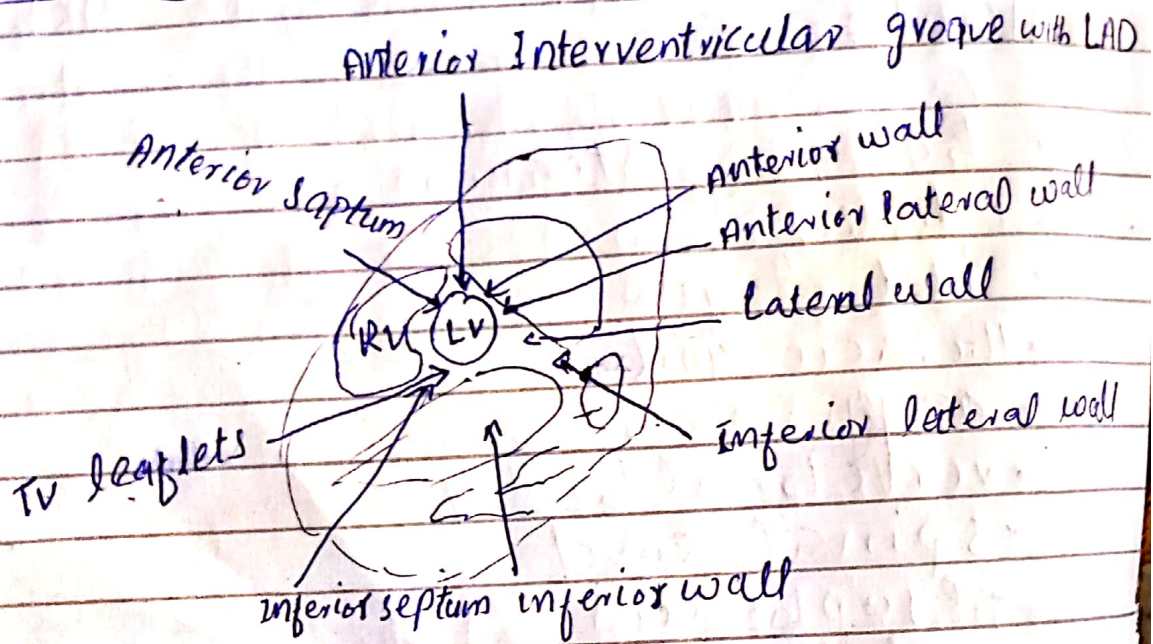 Anterior Interventricular groove with LAD
Anterior Saptum
Anterior wall
Anterior lateral wall
Lateral wall
RV
LV
Inferior lateral wall
TV leaflets
inferior septum inferior wall